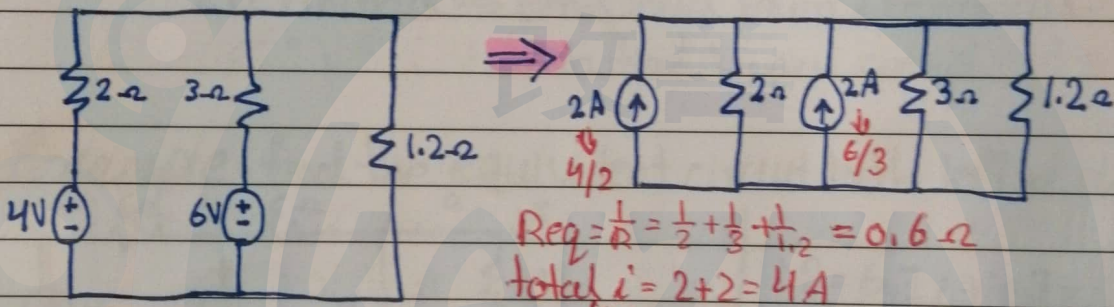 2Ω 3Ω 1.2Ω
4V + - 6V + -
⇒
2A 2Ω 2A 3Ω 1.2Ω
4/2 6/3
Req = 1/R = 1/2 + 1/3 + 1/1.2 = 0.6Ω
total i = 2+2 = 4A
改善